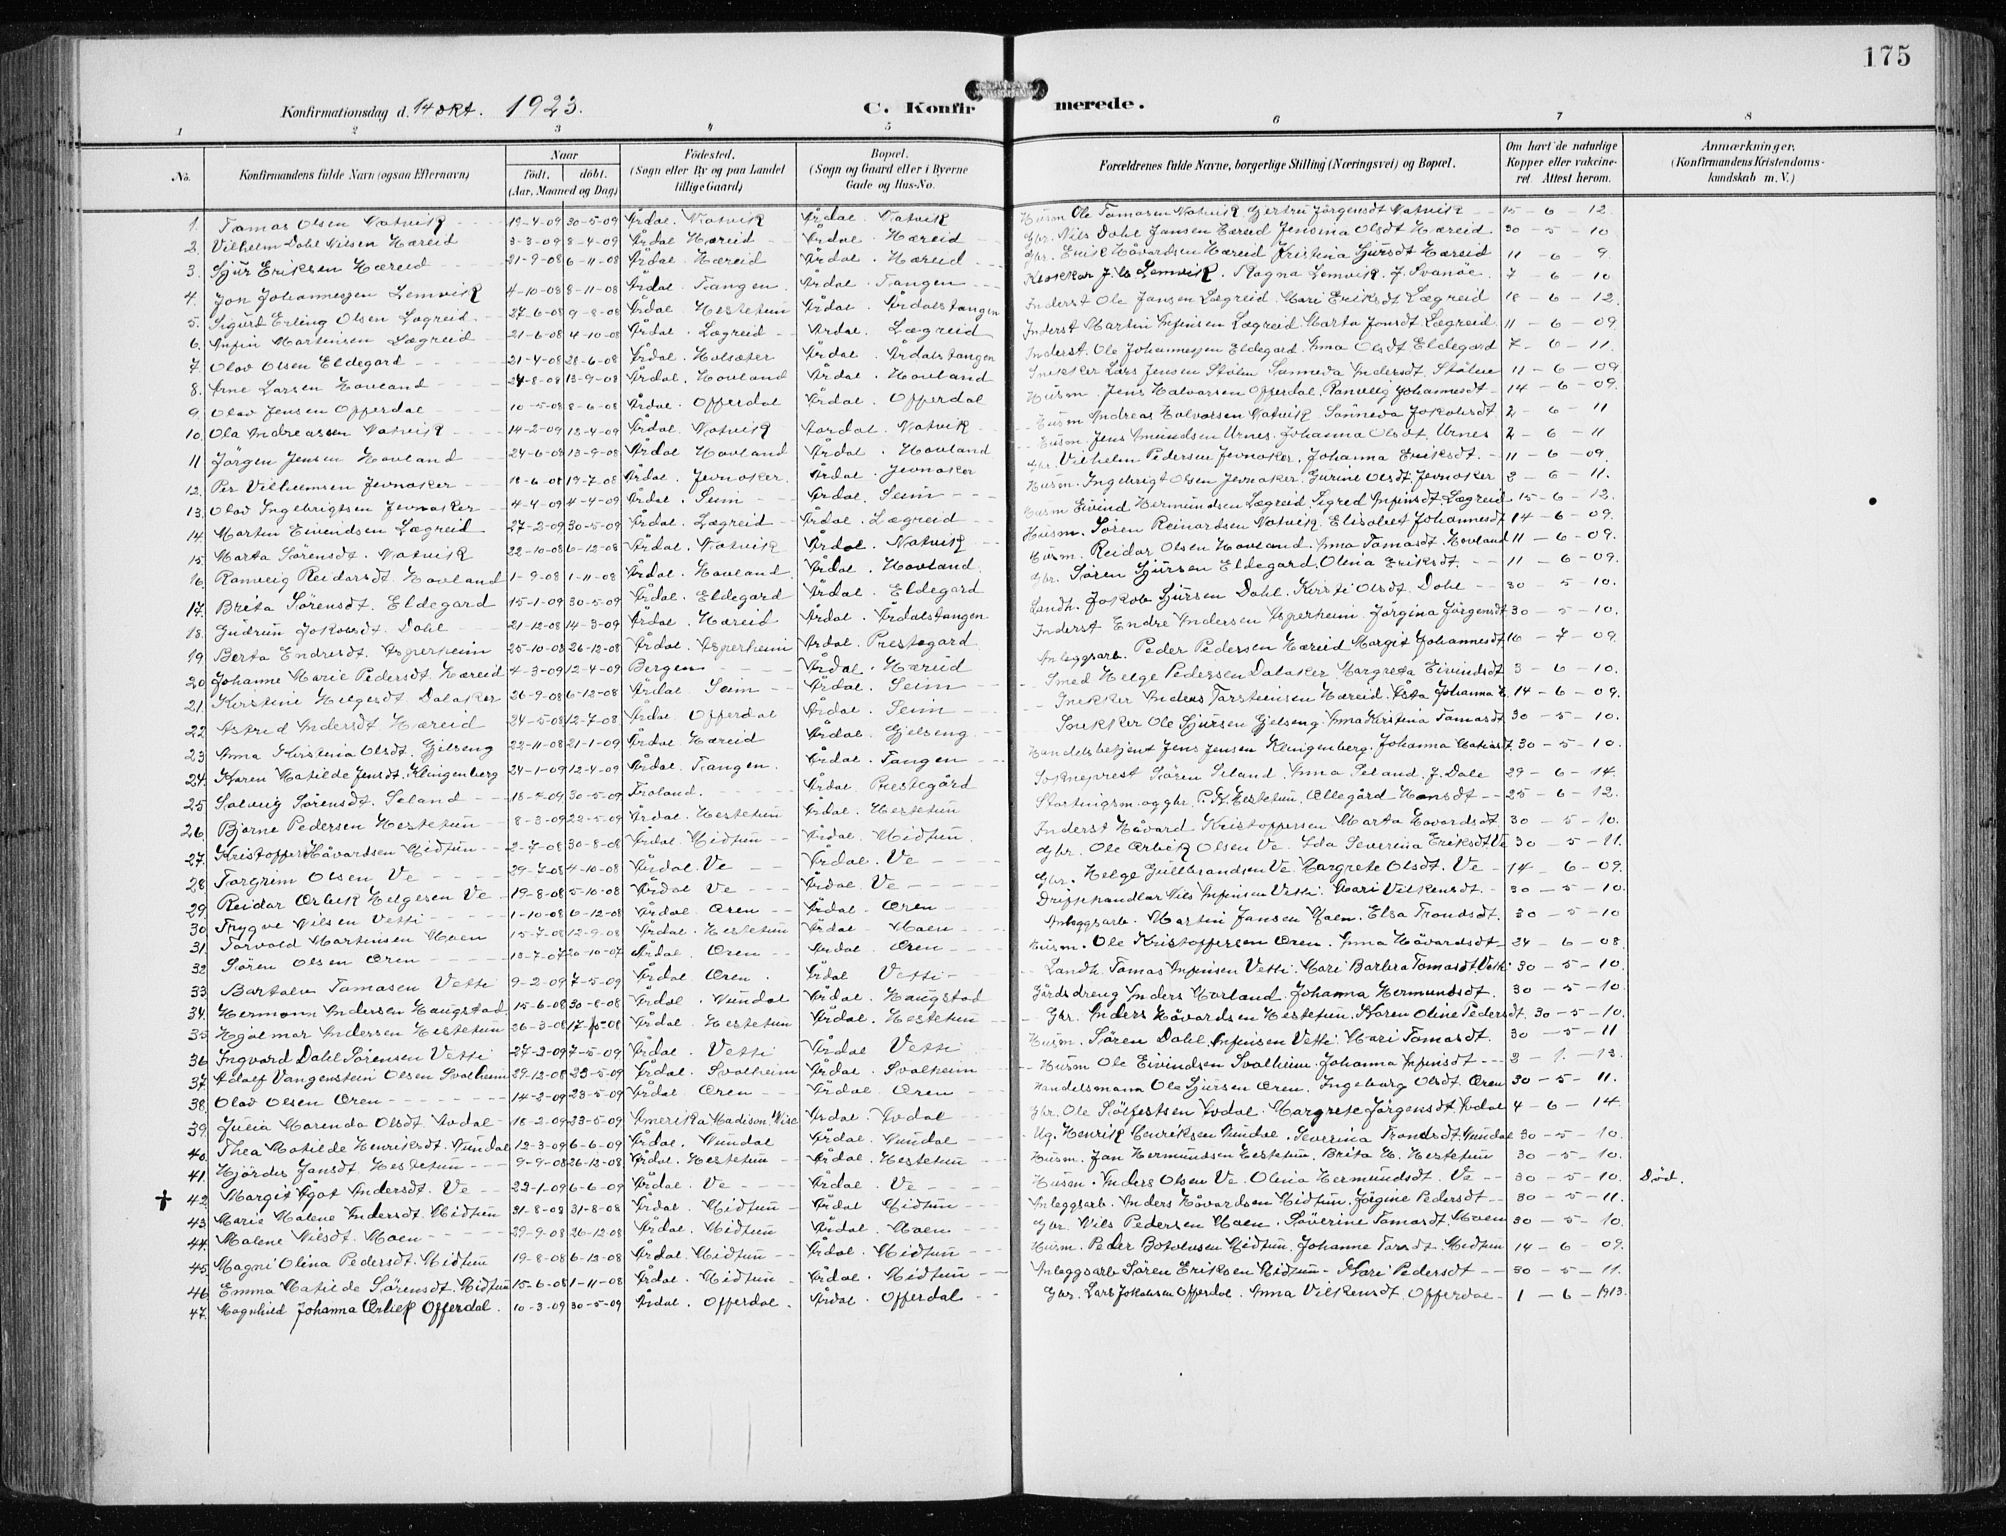 175
Konfirmationsdag d. 14 okt. 1923.
C. Konfirmerede.
1 2 3 4 5 6 7 8
No. Konfirmandens fulde Navn (ogsaa Efternavn) Naar Født. døbt. (Aar, Maaned og Dag) Fødested. (Sogn eller By og paa Landet tillige Gaard) Bopæl. (Sogn og Gaard eller i Byerne Gade og Hus-No. Forældrenes fulde Navne, borgerlige Stilling (Næringsvei) og Bopæl. Om havt de naturlige Kopper eller vaccineret. Attest herom. Anmærkninger. (Konfirmandens Kristendomskundskab m. V.)
1. Tamas Olsen Natvik 19-4-09 30-5-09 Årdal. Natvik Årdal. Natvik Husm Ole Tamasen Natvik Gjertru Jörgensdt Natvik 15-6-12.
2. Vilhelm Dahl Nilsen Hæreid 3-3-09 8-4-09 Årdal Hæreid Årdal. Hæreid Gbr. Nils Dahl Jansen Hæreid Jensina Olsdt Hæreid 30-5-10
3. Sjur Eriksen Hæreid 21-9-08 6-11-08 Årdal. Hæreid Årdal. Hæreid Gbr. Erik Håvardsen Hæreid Kristina Sjursdt Hæreid 11-6-9
4. Jon Johannessen Lemvik 4-10-08 8-11-08 Årdal. Tangen. Årdal. Tangen Lemvik. Ragna Lemvik. f. Svanöe. 7-6-10
5. Sigurd Erling Olsen Lægreid 27-6-08 9-8-08 Årdal. Hestetun Årdal. Årdalstangen Inderst Ole Jansen Lægreid. Mari Eriksdt Lægreid 18-6-12.
6. Anfin Martinsen Lægreid 21-6-08 4-10-08 Årdal. Lægreid Årdal. Lægreid Inderst Martin Anfinsen Lægreid Marta Jonsdt Lægreid 11-6-09.
7. Olav Olsen Eldegard 21-4-08 28-6-08 Årdal. Holsæter Årdal. Årdalstangen Inderst. Ole Johannessen Eldegard. Anna Olsdt Eldegard 7-6-11.
8. Arne Larsen Hovland 24-8-08 13-9-08 Årdal. Hovland Årdal. Hovland Snekker Lars Jensen Stölen Sanneva Andersdt. Stölen 11-6-09
9. Olav Jensen Offerdal 10-5-08 8-6-08 Årdal. Offerdal Årdal. Offerdal Husm Jens Halvarsen Offerdal. Ranveig Johannesdt 14-6-09.
10. Ola Andreassen Natvik 14-2-09 12-4-09 Årdal. Natvik Aardal. Natvik Husm Andreas Halvarsen Natvik. Sanneva Jakobsdt 2-6-11
11 Jörgen Jensen Hovland 24-6-08 13-9-08 Årdal Hovland Årdal. Hovland Husm. Jens Amundsen Urnes. Johanna Olsdt. Urnes 2-6-11
12. Per Vilhelmsen Jevnaker 18-6-08 19-7-08 Årdal. Jevnaker. Årdal. Jevnaker Gbr Vilhelm Pedersen Jevnaker. Johanna Eriksdt. 11-6-09.
13. Olav Ingebrigtsen Jevnaker 4-4-09 4-4-09 Årdal. Seim Årdal. Seim Husm. Ingebrigt Olsen Jevnaker. Gurine Olsdt. Jevnaker 2-6-11.
14. Martin Eivindsen Lægreid 27-2-09 30-5-09 Årdal. Lægreid Årdal. Lægreid Husm Eivind Hermundsen Lægreid. Sigred Anfinsdt. Lægreid 15-6-12.
15 Marta Sörensdt. Natvik 22-10-08 6-12-08 Årdal. Natvik Årdal. Natvik Husm. Sören Reinardsen Natvik. Elisabet Johannesdt 14-6-09.
16. Ranveig Reidarsdt. Hovland 1-9-08 1-11-08 Årdal. Hovland Årdal. Hovland. Husm. Reidar Olsen Hovland. Anna Tamasdt. Hovland 11-6-09.
17. Brita Sörensdt. Eldegard 15-1-09 30-5-09 Årdal. Eldegard Årdal. Eldegard Gbr. Sören Sjursen Eldegard. Olina Eriksdt. 11-6-09.
18. Gudrun Jakobsdt. Dahl 21-12-08 14-3-09 Årdal. Hæreid Årdal. Årdalstangen Landh. Jakob Sjursen Dahl. Kirsti Olsdt. Dahl 30-5-10.
19 Berta Endresdt. Asperheim 25-10-08 26-12-08 Årdal. Asperheim Årdal. Prestegard Inderst Endre Andersen Asperheim Jörgina Jörgensdt 30-5-10.
20 Johanne Marie Pedersdt. Hæreid 4-3-09 12-4-09 Bergen Årdal. Hæreid Anleggsarb. Peder Pedersen Hæreid Margit Johannesdt 16-7-09.
21. Kirstine Helgesdt. Dalaker 26-9-08 6-12-08 Årdal Seim Årdal. Seim Smed Helge Pedersen Dalaker. Margreta Eivindsdt 3-6-10.
22 Astrid Andersdt. Hæreid 24-5-08 12-7-08 Årdal. Offerdal Årdal. Seim Snekker Anders Tarsteinsen Hæreid. Åsta Johanna 14-6-09.
23 Anna Kirstina Olsdt. Gjelseng 22-11-08 21-1-09 Årdal Hæreid Årdal. Gjelseng Snekker Ole Sjursen Gjelseng. Anna Kirstina Tamasdt 30-5-10.
24. Karen Matilde Jensdt. Klingenberg 24-1-09 12-4-09 Årdal. Tangen. Årdal. Tangen Handelsbetjent Jens Jensen Klingenberg. Johanna 30-5-10.
25 Solveig Sörensdt. Seland 18-4-09 30-5-09 Froland. Årdal. Prestegård Sokneprest Sören Seland. Anna Seland. f. Dale 29-6-14.
26 Bjarne Pedersen Hestetun 8-3-09 22-5-09 Årdal. Hestetun Årdal. Hestetun Stortingsm. og gbr. P. Hestetun. Ællegård Hansdt 25-6-12.
27. Kristoffer Håvardsen Midtun 2-7-08 30-8-08 Årdal. Midtun Årdal. Midtun Inderst Håvard Kristoffersen Marta Havardsdt 30-5-10.
28 Torgrim Olsen Ve 29-7-08 4-10-08 Årdal. Ve Årdal. Ve Gbr. Ole Orbek Olsen Ve. Ida Severina Eriksdt Ve 30-5-11.
29. Reidar Orbek Helgesen Ve 19-8-08 5-10-08 Årdal Ve Årdal. Ve Gbr. Helge Gulbrandsen Ve Margrete Olsdt. Ve 14-6-09.
30 Trygve Nilsen Vetti 1-10-08 6-12-08 Årdal Øren Årdal. Øren Driftehandlar Nils Anfinsen Vetti. Mari Vilkensdt. 30-5-10.
31. Torvald Martinsen Moen 15-7-08 12-9-08 Årdal. Hestetun Årdal. Moen Anleggsarb. Martin Jansen Moen. Elsa Trondsdt. 30-5-10
32 Sören Olsen Øren 13-7-07 20-10-07 Årdal. Øren Årdal. Øren Husm. Ole Kristoffersen Øren. Anna Håvardsdt 24-6-08.
33. Bartolin Tamasen Vetti 9-2-09 7-5-09 Årdal Øren. Årdal Vetti Landh. Tamas Anfinsen Vetti. Mari Barbra Tamasdt Vetti 30-5-10.
34. Hermann Andersen Haugstad 15-6-08 30-8-08 Årdal. Nundal Årdal. Haugstad Gårdsdreng Anders Morland. Johanna Hermundsdt. 30-5-10.
35 Hjalmar Andersen Hestetun 26-3-08 17-5-08 Årdal. Hestetun Årdal. Hestetun Gbr. Anders Håvardsen Hestetun. Karen Oline Pedersdt. 30-5-10.
36 Ingvard Dahl Sörensen Vetti 27-2-09 7-5-09 Årdal. Vetti Årdal Vetti Husm. Sören Dahl Anfinsen Vetti Mari Tamasdt. 30-5-11
37. Adolf Vangenstein Olsen Svalheim 29-12-08 23-5-09 Årdal. Svalheim Årdal. Svalheim Husm Ole Eivindsen Svalheim. Johanna Anfinsdt 2-1-12.
38. Olav Olsen Øren 14-2-09 23-5-09 Årdal Øren Årdal Øren Handelsmann Ole Sjursen Øren. Ingeborg Olsdt. Øren 30-5-11.
39. Julia Marenda Olsdt. Avdal 18-2-09 23-5-09 Amerika Madison, Wisc Årdal Avdal Gbr. Ole Sölfestsen Avdal. Margrete Jörgensdt. Avdal 4-6-14
40. Thea Matilde Henriksdt. Nundal 12-3-09 6-6-09 Årdal. Nundal Årdal. Nundal Ug. Henrik Henriksen Nundal. Severina Trondsdt. Nundal 30-5-10.
41. Hjördis Jansdt Hestetun 9-9-08 26-12-08 Årdal. Hestetun Årdal. Hestetun Husm. Jan Hermundsen Hestetun. Brita H. Hestetun 30-5-10.
† 42. Margit Ågot Andersdt. Ve 22-1-09 6-6-09 Årdal. Ve Årdal. Ve Husm. Anders Olsen Ve. Olina Hermundsdt. Ve 30-5-10. Död.
43. Marie Malene Andersdt. Midtun 21-8-08 31-8-08 Årdal. Midtun Årdal Midtun Anleggsarb. Anders Håvardsen Midtun. Jörgine Pedersdt 30-5-11.
44. Malene Nilsdt. Moen 29-9-08 26-12-08 Årdal. Midtun Årdal Moen Gbr. Nils Pedersen Moen. Söverine Tamasdt. Moen 30-5-10.
45. Magni Olina Pedersdt. Midtun 19-8-08 6-12-08 Årdal. Midtun Årdal. Midtun Husm. Peder Botolvsen Midtun. Johanne Midtun 14-6-09.
46. Emma Matilde Sörensdt. Midtun 15-6-08 1-11-08 Årdal. Midtun Årdal. Midtun Anleggsarb Sören Eriksen Midtun. Kari Pedersdt 30-5-11.
47. Magnhild Johanna Orbek Offerdal. 10-3-09 30-5-09 Årdal. Offerdal. Årdal. Offerdal Gbr. Lars Jakobsen Offerdal. Anna Vilkensdt. Offerdal 1-6-1913.